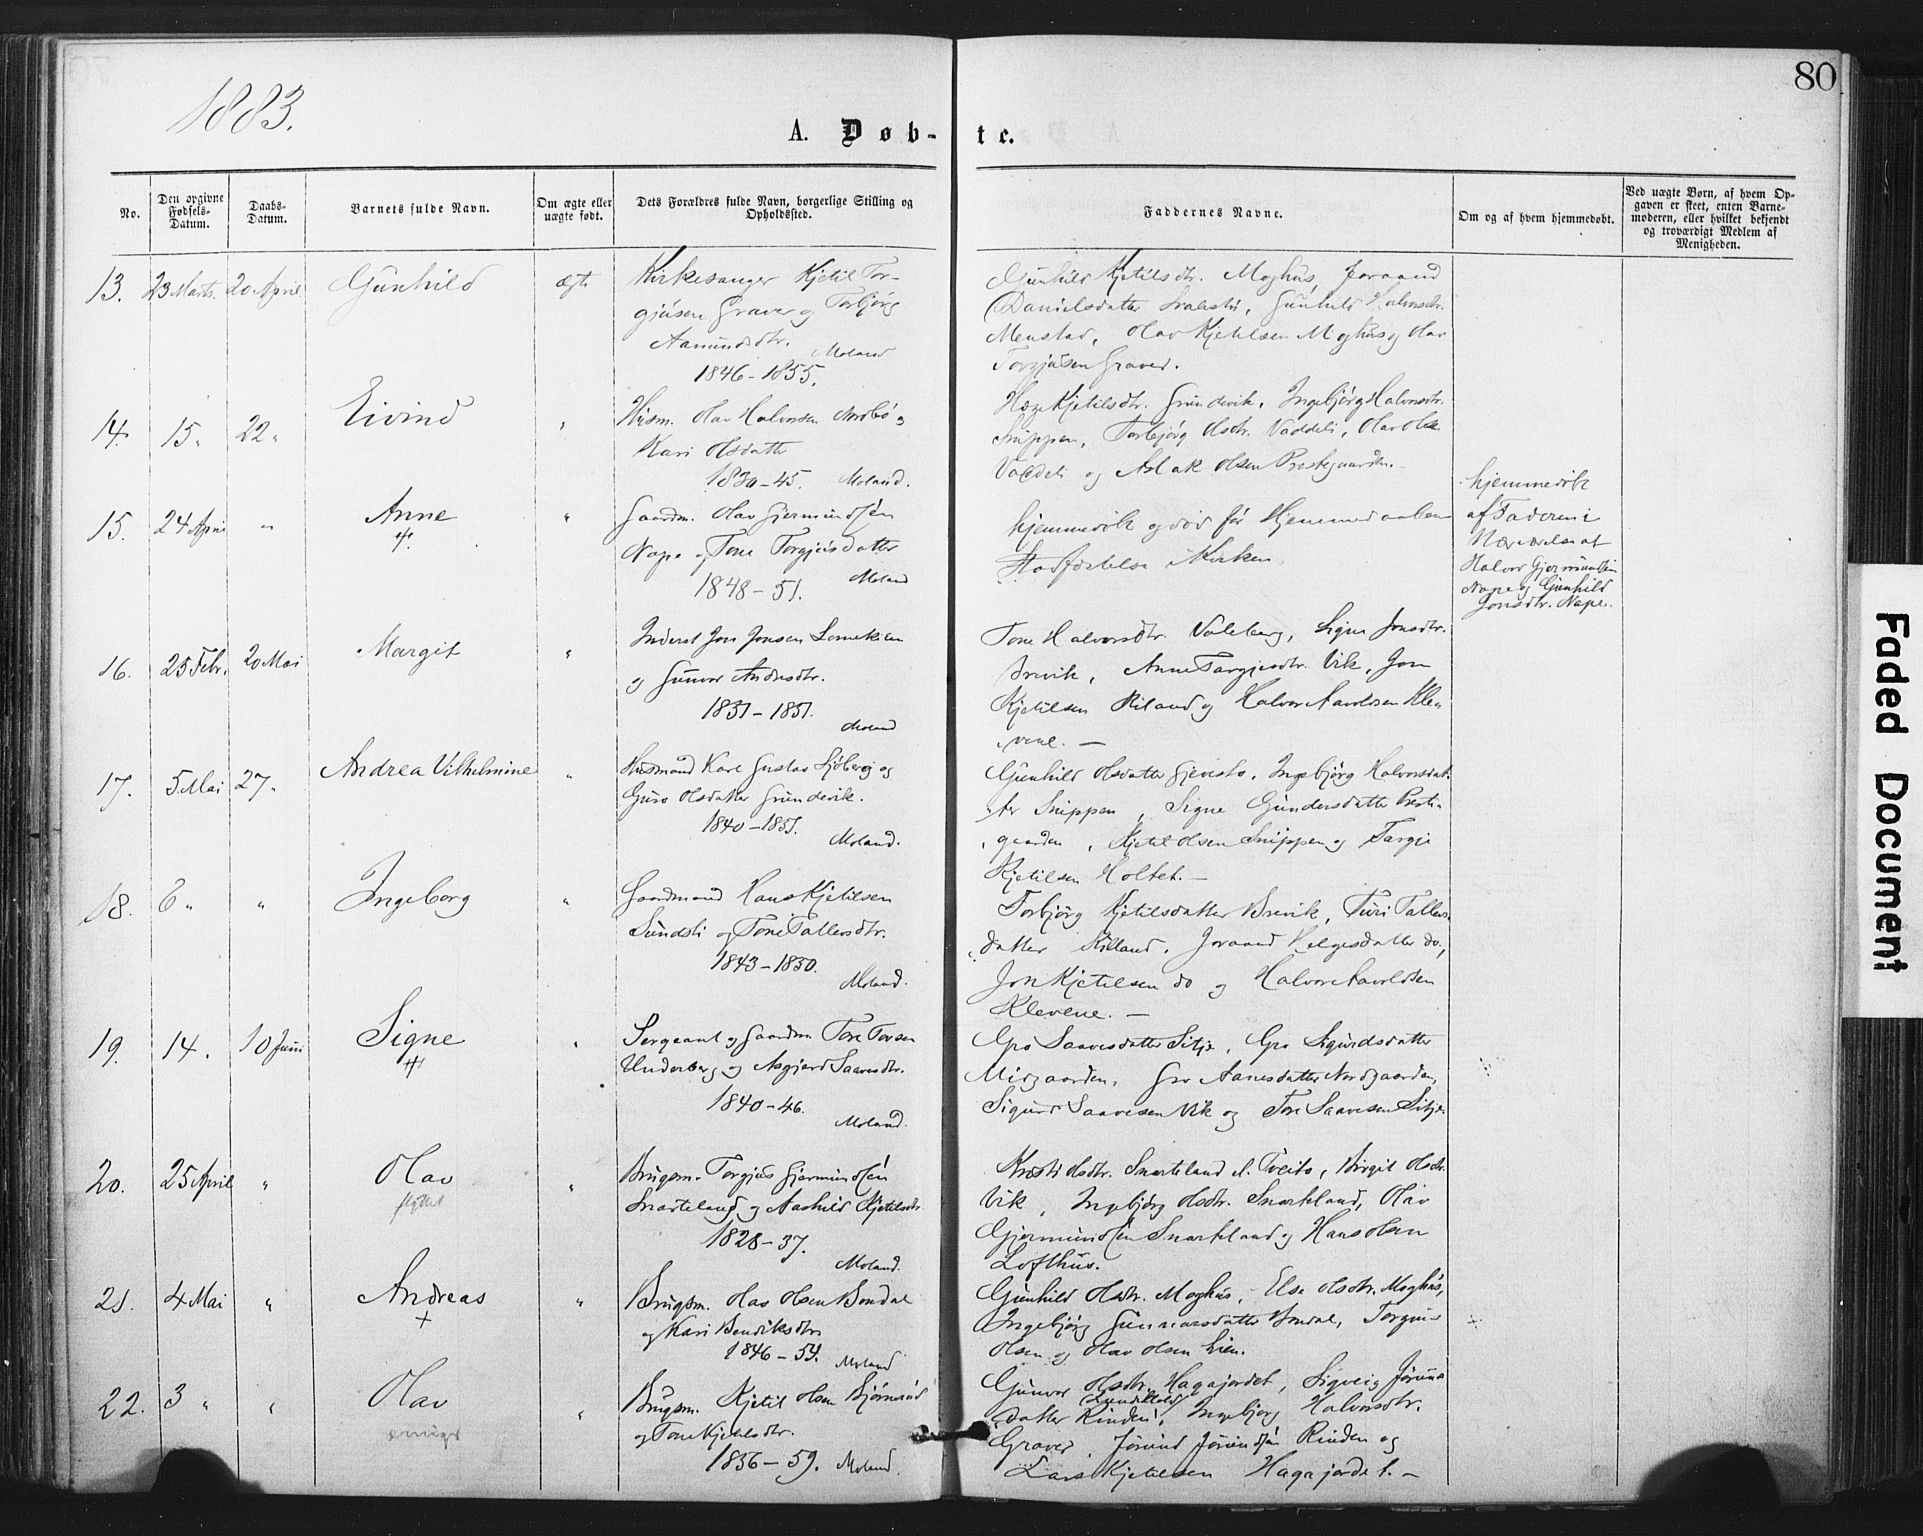 80
1883.
A. Døb-
te.
No.
Den opgivne Fødsels-Datum.
Daabs-Datum.
Barnets fulde Navn.
Om ægte eller uægte født.
Dets Forældres fulde Navn, borgerlige Stilling og Opholdssted.
Faddernes Navne.
Om og af hvem hjemmedøbt.
Ved uægte Børn, af hvem Op-
gaven er skeet, enten Barne-
moderen, eller hvilket bekjendt
og troværdigt Medlem af
Menigheden.
13. 23 Marts. 20 April Gunhild ægte
Kirkesanger Kjetil Tor-
gjusen Graver og Torbjørg
Aamundsdtr. Moland
1846-1855.
Gunhild Kjetilsdtr. Moghus, Joraand
Danielsdatter Gunhild Halvorsdtr.
Menstad, Olav Kjetilsen Moghus og Olav
Torgjusen Graver.
14. 15 " 22 " Eivind "
Husm. Olav Halvorsen og
Kari Olsdatter
1830-45. Moland.
Hæge Kjetilsdtr. Grundevik, Ingebjørg Halvorsdtr.
Snippen, Torbjørg Olsdtr. Vaddeli, Olav Olsen
Vaddeli og Aslak Olsen Prestegaarden.-
15. 24 April " Anne "
Gaardm. Olav Gjermundsen
Nape og Tone Torgjusdatter
1848-51. Moland
hjemmedøbt og død før Hjemmedaabens
Stadfæstelse i Kirken.
hjemmedøbt
af Faderen i
Nærværelse af
Halvor Gjermundsen
Nape og Gunhild
Jonsdtr. Nape.
16. 25 Febr. 20 Mai Margit "
Inderst Jon Jonsen
og Gunvor Andersdtr.
1851-1851. Moland
Tone Halvorsdtr. Valeberg, Signe Jonsdtr.
Brevik, Anne Targjesdtr. Vik, Jon
Kjetilsen Kiland og Halvor Aavoldsen Kle-
vene. -
17. 5 Mai 27. Andrea Vilhelmine "
Husmand Karl Gustav Sjøberg og
Guro Olsdatter Grundevik.
1840-1851. Moland.
Gunhild Olsdatter Gjevesto, Ingebjørg Halvorsdat-
ter Snippen, Signe Gundersdatter Preste-
gaarden, Kjetil Olsen Snippen og Targje
Kjetilsen Holtet. -
18. 6 " " Ingeborg "
Gaardmand Hans Kjetilsen
Sundsli og Tone Tallevsdtr.
1843-1850. Moland.
Torbjørg Kjetilsdatter Brevik, Turi Tallevs-
datter Kiland, Joraand Helgesdatter do,
Jon Kjetilsen do og Halvor Aavoldsen
Klevene. -
19. 14. 10 Juni Signe "
Sergeant og Gaardm. Tore Toresen
Underberg og Asgjerd Saavesdtr.
1840-46. Moland.
Gro Saavesdatter Sitje, Gro Sigurdsdatter
Midgaarden, Gro Aanesdatter Nordgaarden,
Sigurd Saavesen Vik og Tore Saavesen Sitje
20. 25 April " Olav "
flyttet
Brugsm. Torgjus Gjermundsen
Snarteland og Aashild Kjetilsdtr.
1828-37. Moland.
Kristi Olsdtr. Snarteland el. Tveito, Birgit Olsdtr.
Vik, Ingebjørg Olsdtr. Snarteland, Olav
Gjermundsen Snarteland og Hans Olsen
Lofthus.
21. 4 Mai " Andreas "
+
Brugsm. Olav Olsen Bondal
og Kari Bendiksdtr.
1846-54. Moland
Gunhild Olsdtr. Moghus, Else Olsdtr. Moghus,
Ingebjørg Gunnarsdatter Bondal, Torgrim
Olsen og Olav Olsen Lien.
22. 3 " " Olav "
Brugsm. Kjetil Olsen Bjørnerud
og Tone Kjetilsdtr.
1856-59. Moland.
Gunvor Olsdtr. Hagajordet, Sigveig Jørunds-
datter Rinden, Ingebjørg Halvorsdtr.
Graver, Jørund Jørundsen Rinden og
Lars Kjetilsen Hagajordet. -
Faded Document